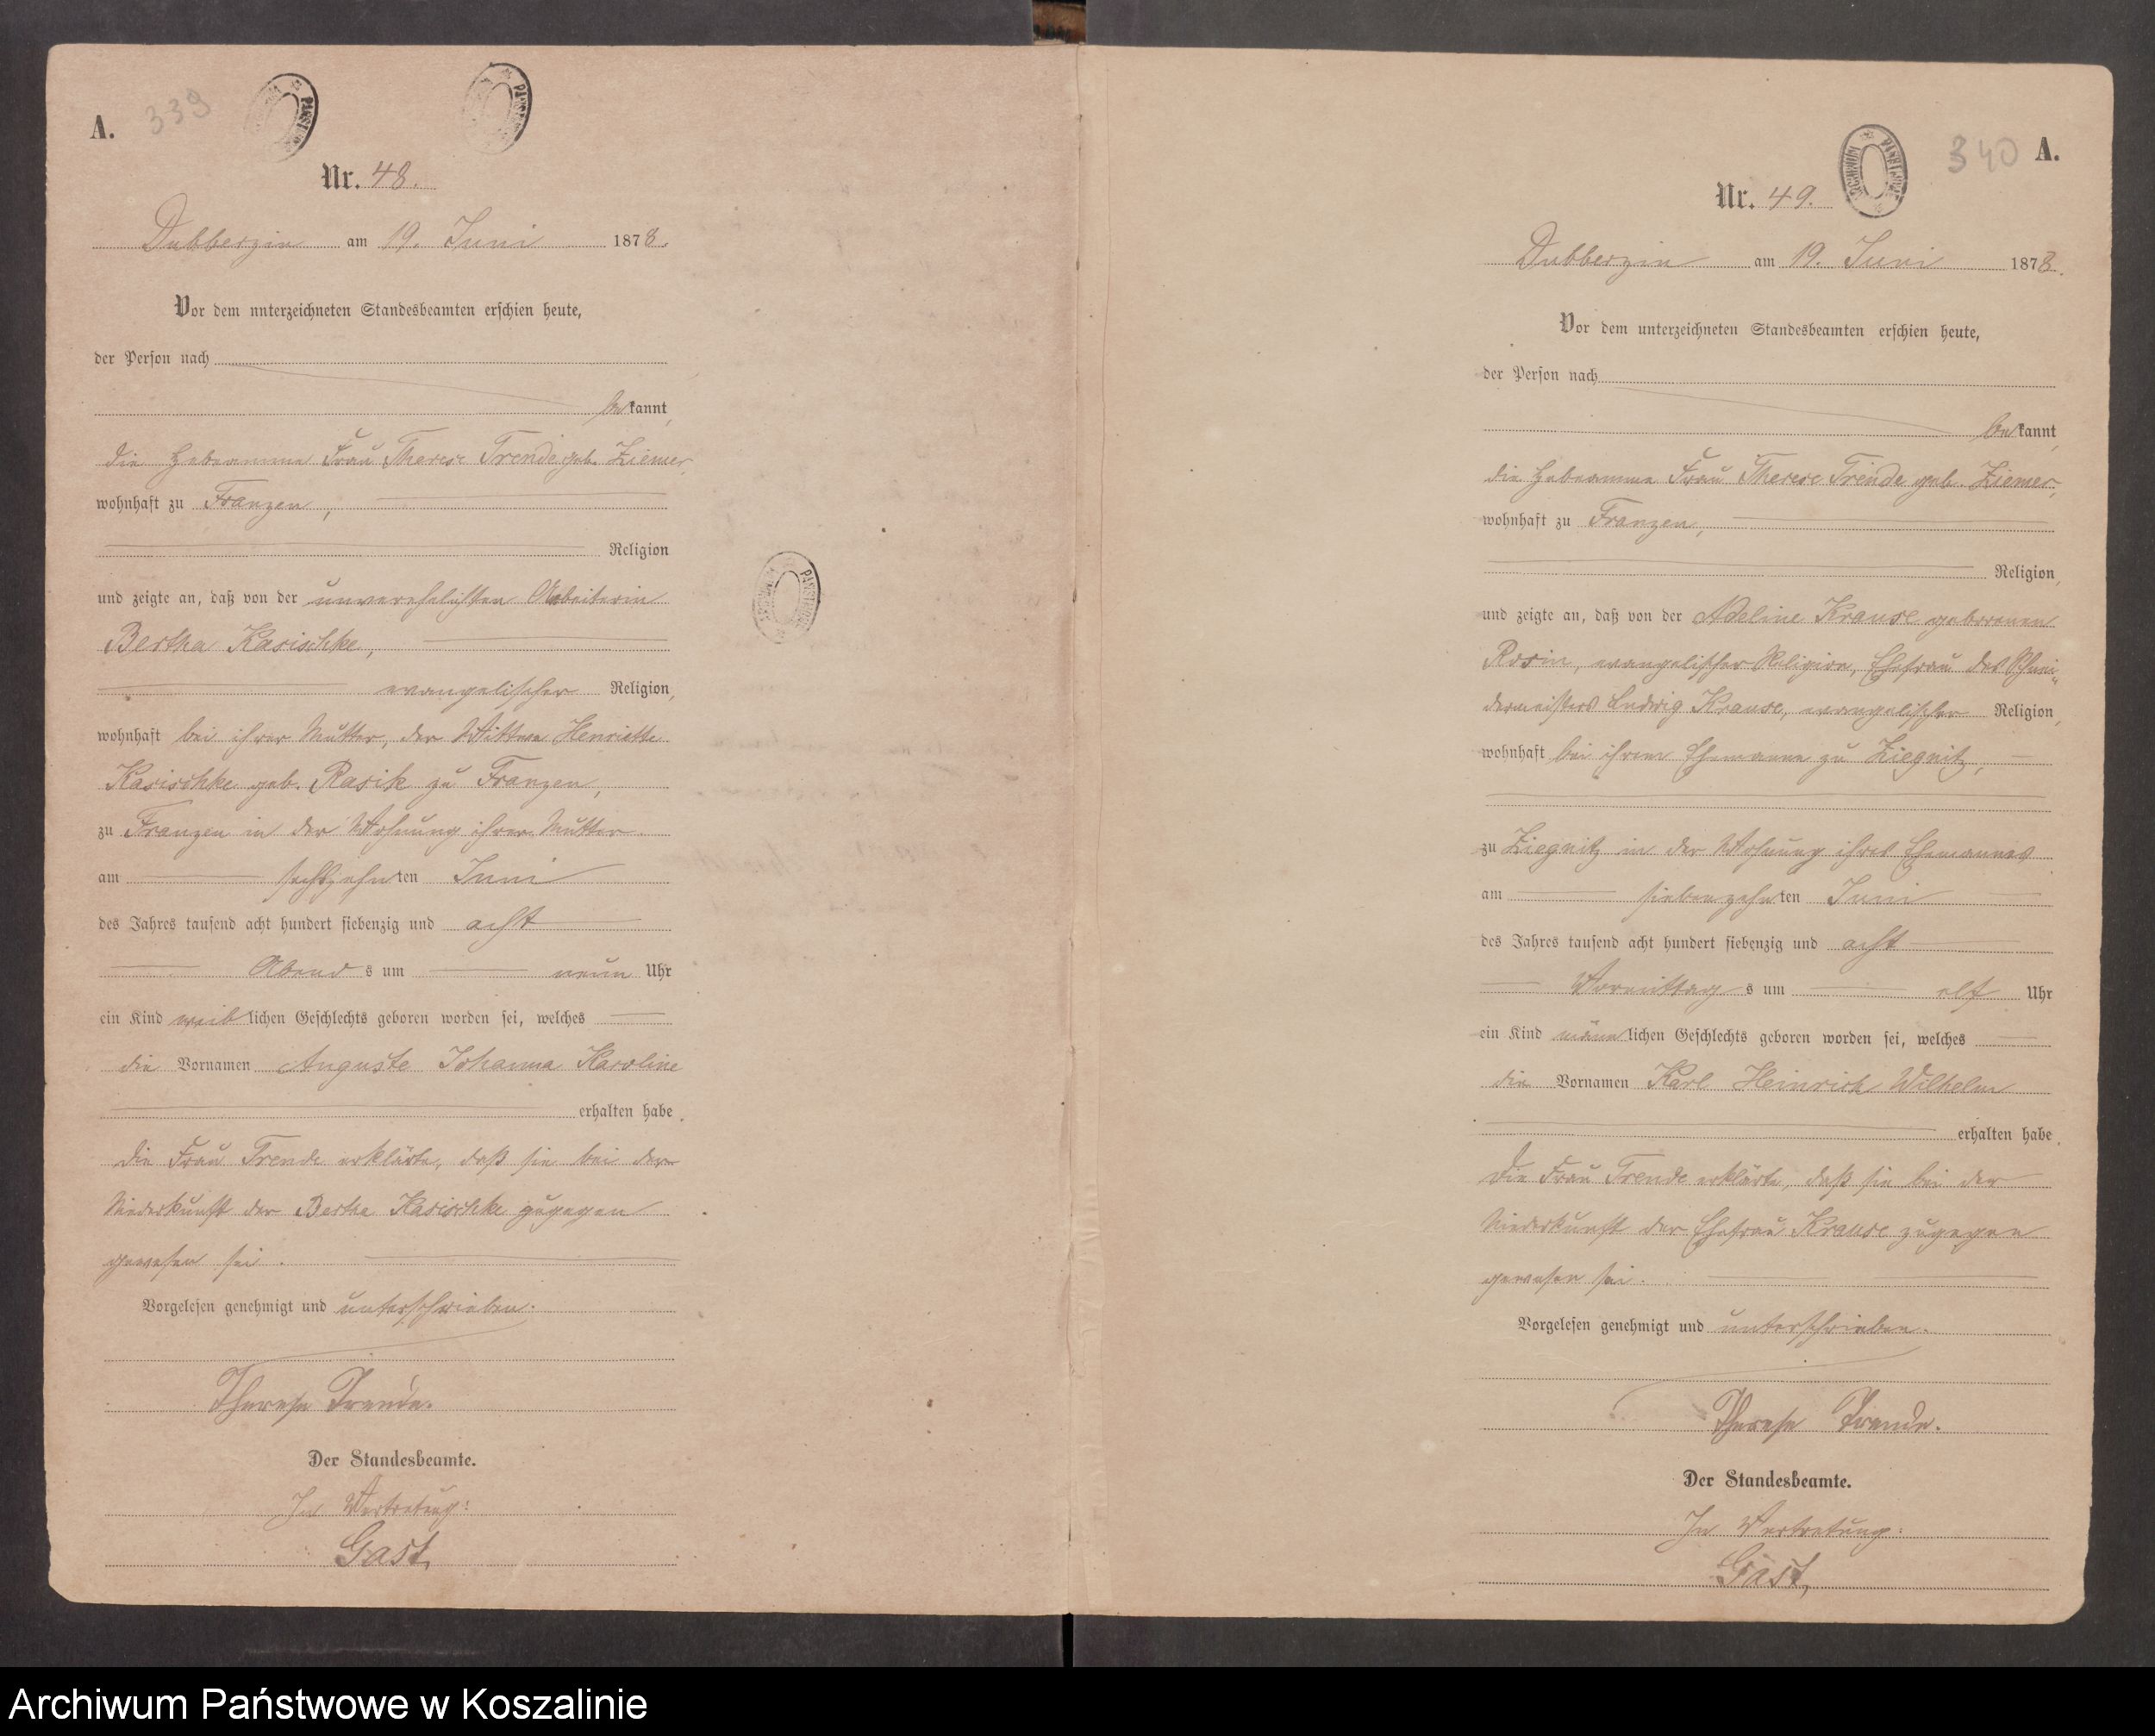 A.
339
Nr. 48.
Dubberzin am 19. Juni 1878.
Vor dem unterzeichneten Standesbeamten erschien heute,
der Person nach
bekannt,
die Hebeamme Frau Therese Trende geb. Ziemer,
wohnhaft zu Franzen,
Religion
und zeigte an, daß von der unverehelichten Arbeiterin
Bertha Kasischke,
evangelischer Religion,
wohnhaft bei ihrer Mutter, der Wittwe Henriette
Kasischke geb. Rasik zu Franzen,
zu Franzen in der Wohnung ihrer Mutter
am sechszehnten Juni
des Jahres tausend acht hundert siebenzig und acht
Abends um neun Uhr
ein Kind weiblichen Geschlechts geboren worden sei, welches
die Vornamen Auguste Johanna Karoline
erhalten habe.
Die Frau Trende erklärte, daß sie bei der
Niederkunft der Bertha Kasischke zugegen
gewesen sei.
Vorgelesen genehmigt und unterschrieben.
Therese Trende.
Der Standesbeamte.
In Vertretung:
Gast,
340 A.
Nr. 49.
Dubberzin am 19. Juni 1878.
Vor dem unterzeichneten Standesbeamten erschien heute,
der Person nach
bekannt,
die Hebeamme Frau Therese Trende geb. Ziemer,
wohnhaft zu Franzen,
Religion,
und zeigte an, daß von der Adeline Krause geborenen
Rosin, evangelischer Religion, Ehefrau des Schnei-
dermeisters Ludwig Krause, evangelischer Religion,
wohnhaft bei ihrem Ehemanne zu Ziegnitz,
zu Ziegnitz in der Wohnung ihres Ehemannes
am siebenzehnten Juni
des Jahres tausend acht hundert siebenzig und acht
Vormittags um elf Uhr
ein Kind männlichen Geschlechts geboren worden sei, welches
die Vornamen Karl Heinrich Wilhelm
erhalten habe.
Die Frau Trende erklärte, daß sie bei der
Niederkunft der Ehefrau Krause zugegen
gewesen sei.
Vorgelesen genehmigt und unterschrieben.
Therese Trende.
Der Standesbeamte.
In Vertretung:
Gast,
Archiwum Państwowe w Koszalinie